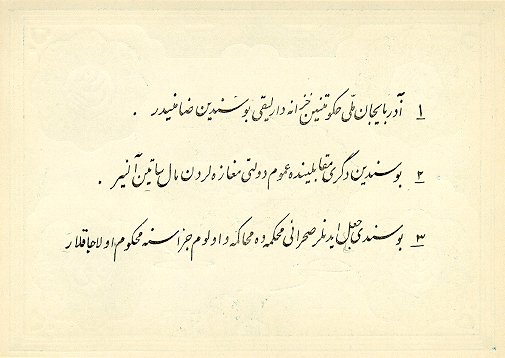 ١ آذربایجان ملّی حکومتنین خزانه دارلیقی بو سندین ضامنیدر .
٢ بو سندین دگری مقابلینده عموم دولتی مغازه لردن مال ساتین آلنیر .
٣ بو سندی جعل ایدنلر صحرائی محکمه ده محاکمه و اولوم جزاسنه محکوم اولاجاقلار